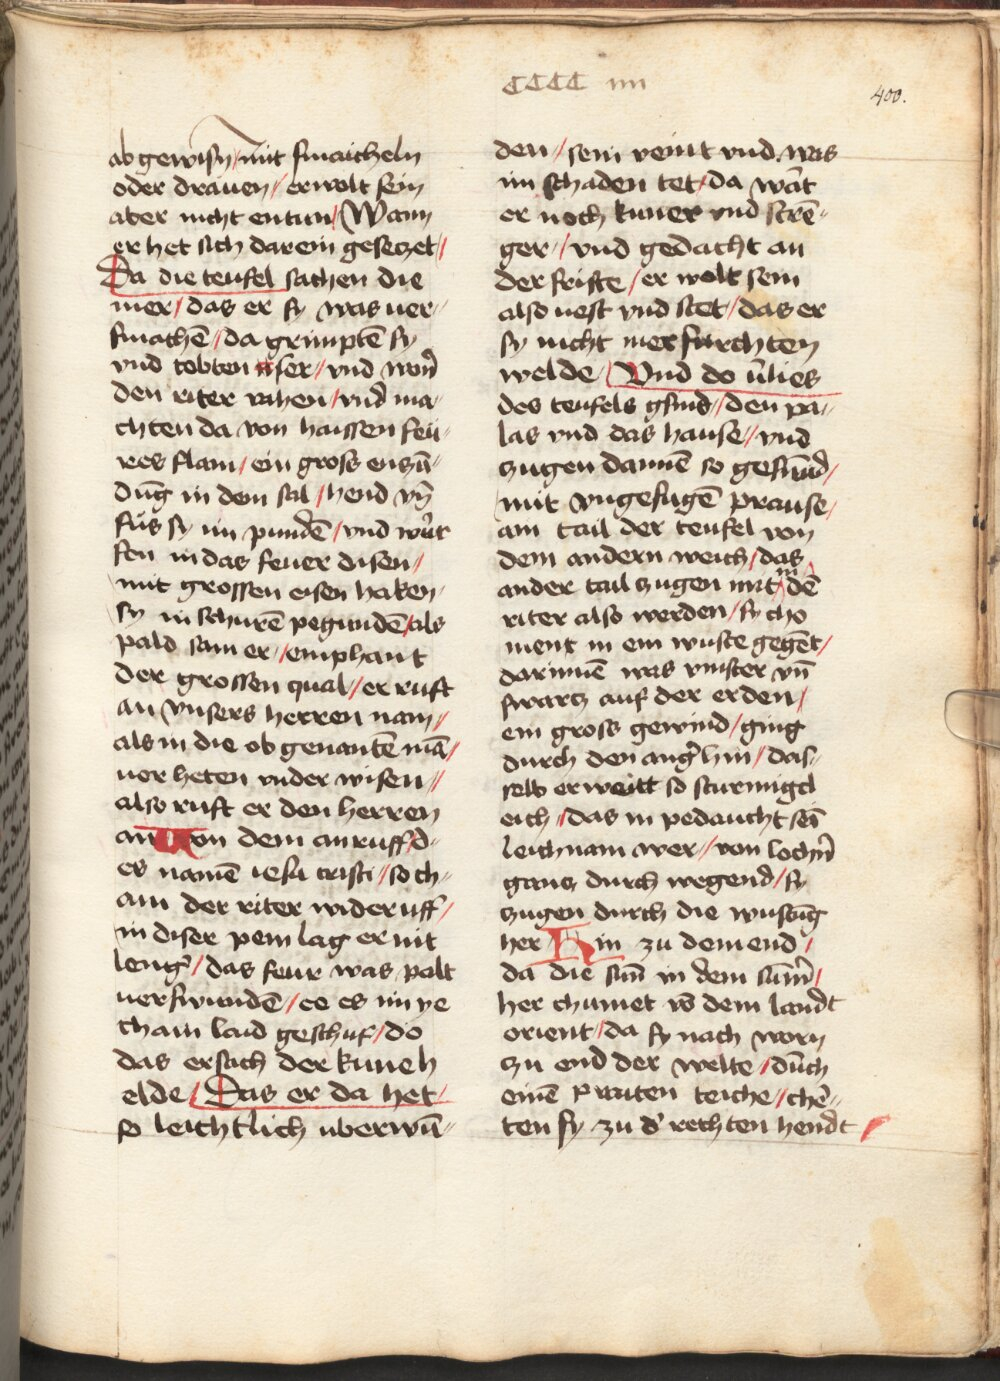 CCCC IIII
400.
ab gewisn / mit smaicheln
oder drauen / er wolt sein
aber nicht entun / Wann
er het sich darein gesetzet /
Da die teufel sachen die
mer / das er sy was uer-
smachē / da grimptē sy
vnd tobten ser / vnd
den riter vahen / vnd ma-
chten da von haissen feü-
res flam / ein gross enzü-
dūg in dem sal / hend vn̄
füs sy im pundē / vnd wur
fen in das feuer disen /
mit grossen eisen haken
sy in schurē pegundē / als
pald sam er / emphant
der grossen qual / er ruft
an vnsers herren nam /
als in die ob genantē mā /
uor heten vnder wisen /
also ruft er den herren
an Von dem anruff d-
es namē iesu cristi / so ch-
am der riter wider uff /
in diser pem lag er nit
leng / das feur was palt
uerswundē / ee es im ye
cham laid geschuf / do
das ersach der kune h
elde / Das er da het /
so leichtlich uberwū-
den / sein veint vnd was
im schaden tet / da wart
er noch kuner vnd strē-
ger / vnd gedacht an
der friste / er wolt sein
also uest vnd stet / das er
sy nicht mer furchten
welde / Vnd do v̄lies
des teufels gsind / den pa-
las vnd das hause / vnd
zugen dannē so geswīd /
mit vngefugē prause /
am tail der teufel von
dem andern weich / das
ander tail zugen mit / dē
riter also werden / sy cho
ment in ein wuste gegēt /
darinnē was vinster vn̄
swarcz auf der erden /
ein gross gewind / ging
durch den ang hin / das-
selb er weitt so sturmigel
eich / das in pedaucht sei
leichnam wer / von
gancz durch wegend / sy
zugen durch die wustūg
her Hin zu dem end /
da die sūn in dem sūm /
her chumet vō dem landt
orient / da sy nach worn
zu end der welte / dūch
einē praiten teiche / chē-
ten sy zu d' rechten hendt /